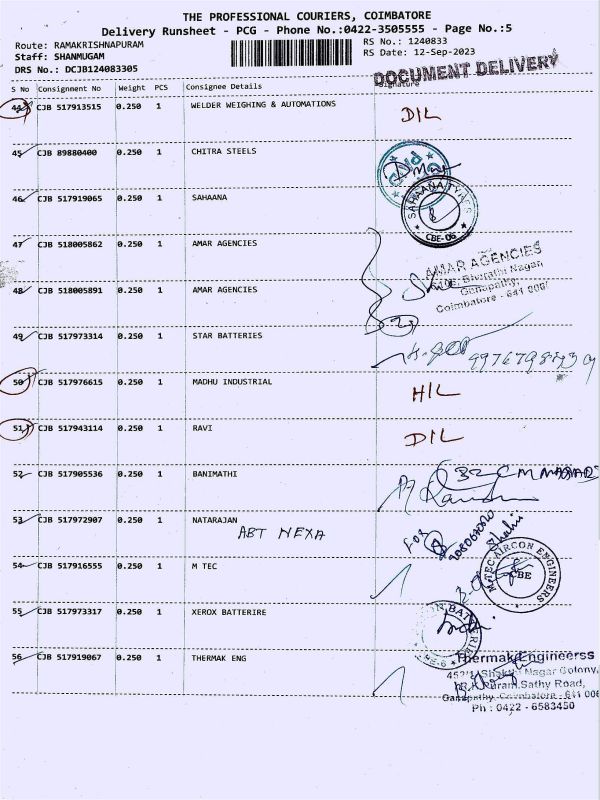 THE PROFESSIONAL COURIERS, COIMBATORE
Delivery Runsheet - PCG - Phone No.:0422-3505555 - Page No.:5
Route: RAMAKRISHNAPURAM
Staff: SHANMUGAM
DRS No.: DCJB124083305
RS No.: 1240833
RS Date: 12-Sep-2023
DOCUMENT DELIVERY
S No Consignment No Weight PCS Consignee Details Signature
44 CJB 517913515 0.250 1 WELDER WEIGHING & AUTOMATIONS DIL
45 CJB 89880400 0.250 1 CHITRA STEELS
46 CJB 517919065 0.250 1 SAHAANA
SAHAANA
CBE-06
47 CJB 518005862 0.250 1 AMAR AGENCIES
AMAR AGENCIES
Bharathi Nagar,
Ganapathy,
Coimbatore - 641 006
48 CJB 518005891 0.250 1 AMAR AGENCIES
49 CJB 517973314 0.250 1 STAR BATTERIES
50 CJB 517976615 0.250 1 MADHU INDUSTRIAL HIL
51 CJB 517943114 0.250 1 RAVI DIL
52 CJB 517905536 0.250 1 BANIMATHI
53 CJB 517972907 0.250 1 NATARAJAN
ABT NEXA
FOR
54 CJB 517916555 0.250 1 M TEC
M-TEC AIRCON ENGINEERS
CBE
55 CJB 517973317 0.250 1 XEROX BATTERIRE
56 CJB 517919067 0.250 1 THERMAK ENG
Thermak Engineerss
Nagar Colony,
Sathy Road,
Ganapathy, Coimbatore - 641 006
Ph : 0422 - 6583450